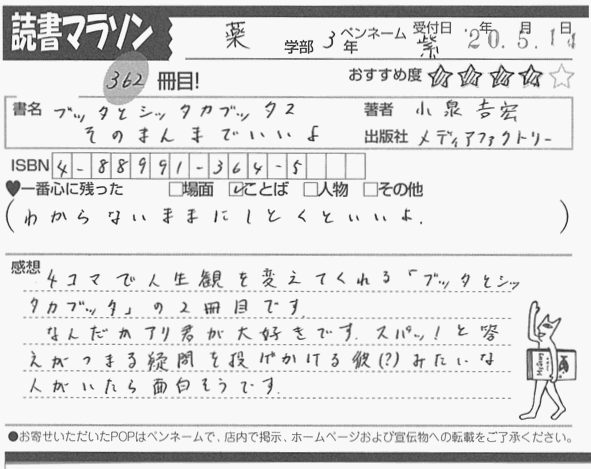 読書マラソン
薬 学部 3年 ペンネーム 紫 受付日 20年 5月 14日
362 冊目!
おすすめ度 ★★★★☆
書名 ブッタとシッタカブッタ2
そのまんまでいいよ
著者 小泉吉宏
出版社 メディアファクトリー
ISBN 4-88991-364-5
♥一番心に残った □場面 ☑ことば □人物 □その他
(わからないままにしとくといいよ.)
感想 4コマで人生観を変えてくれる「ブッタとシッ
タカブッタ」の2冊目です.
なんだかアリ君が大好きです. スパッ!と答
えがつまる疑問を投げかける彼(?)みたいな
人がいたら面白そうです.
●お寄せいただいたPOPはペンネームで、店内で掲示、ホームページおよび宣伝物への転載をご了承ください。